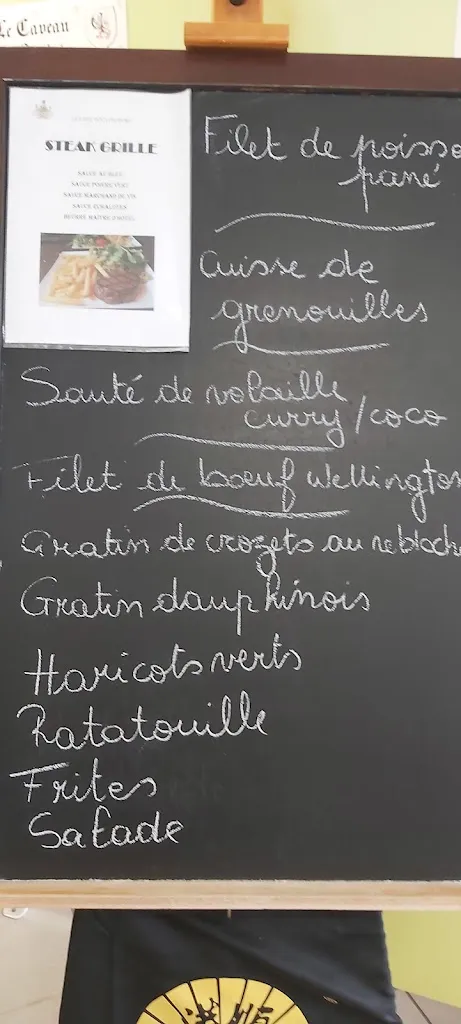 Le Caveau
STEAK GRILLE
SAUCE AU BLEU
SAUCE POIVRE VERT
SAUCE MARCHAND DE VIN
SAUCE ECHALOTES
BEURRE MAITRE D'HOTEL
Filet de poisso
pané
Cuisse de
grenouilles
Sauté de volaille
curry/coco
Filet de boeuf Wellington
Gratin de crozets au rebloch
Gratin dauphinois
Haricots verts
Ratatouille
Frites
Salade